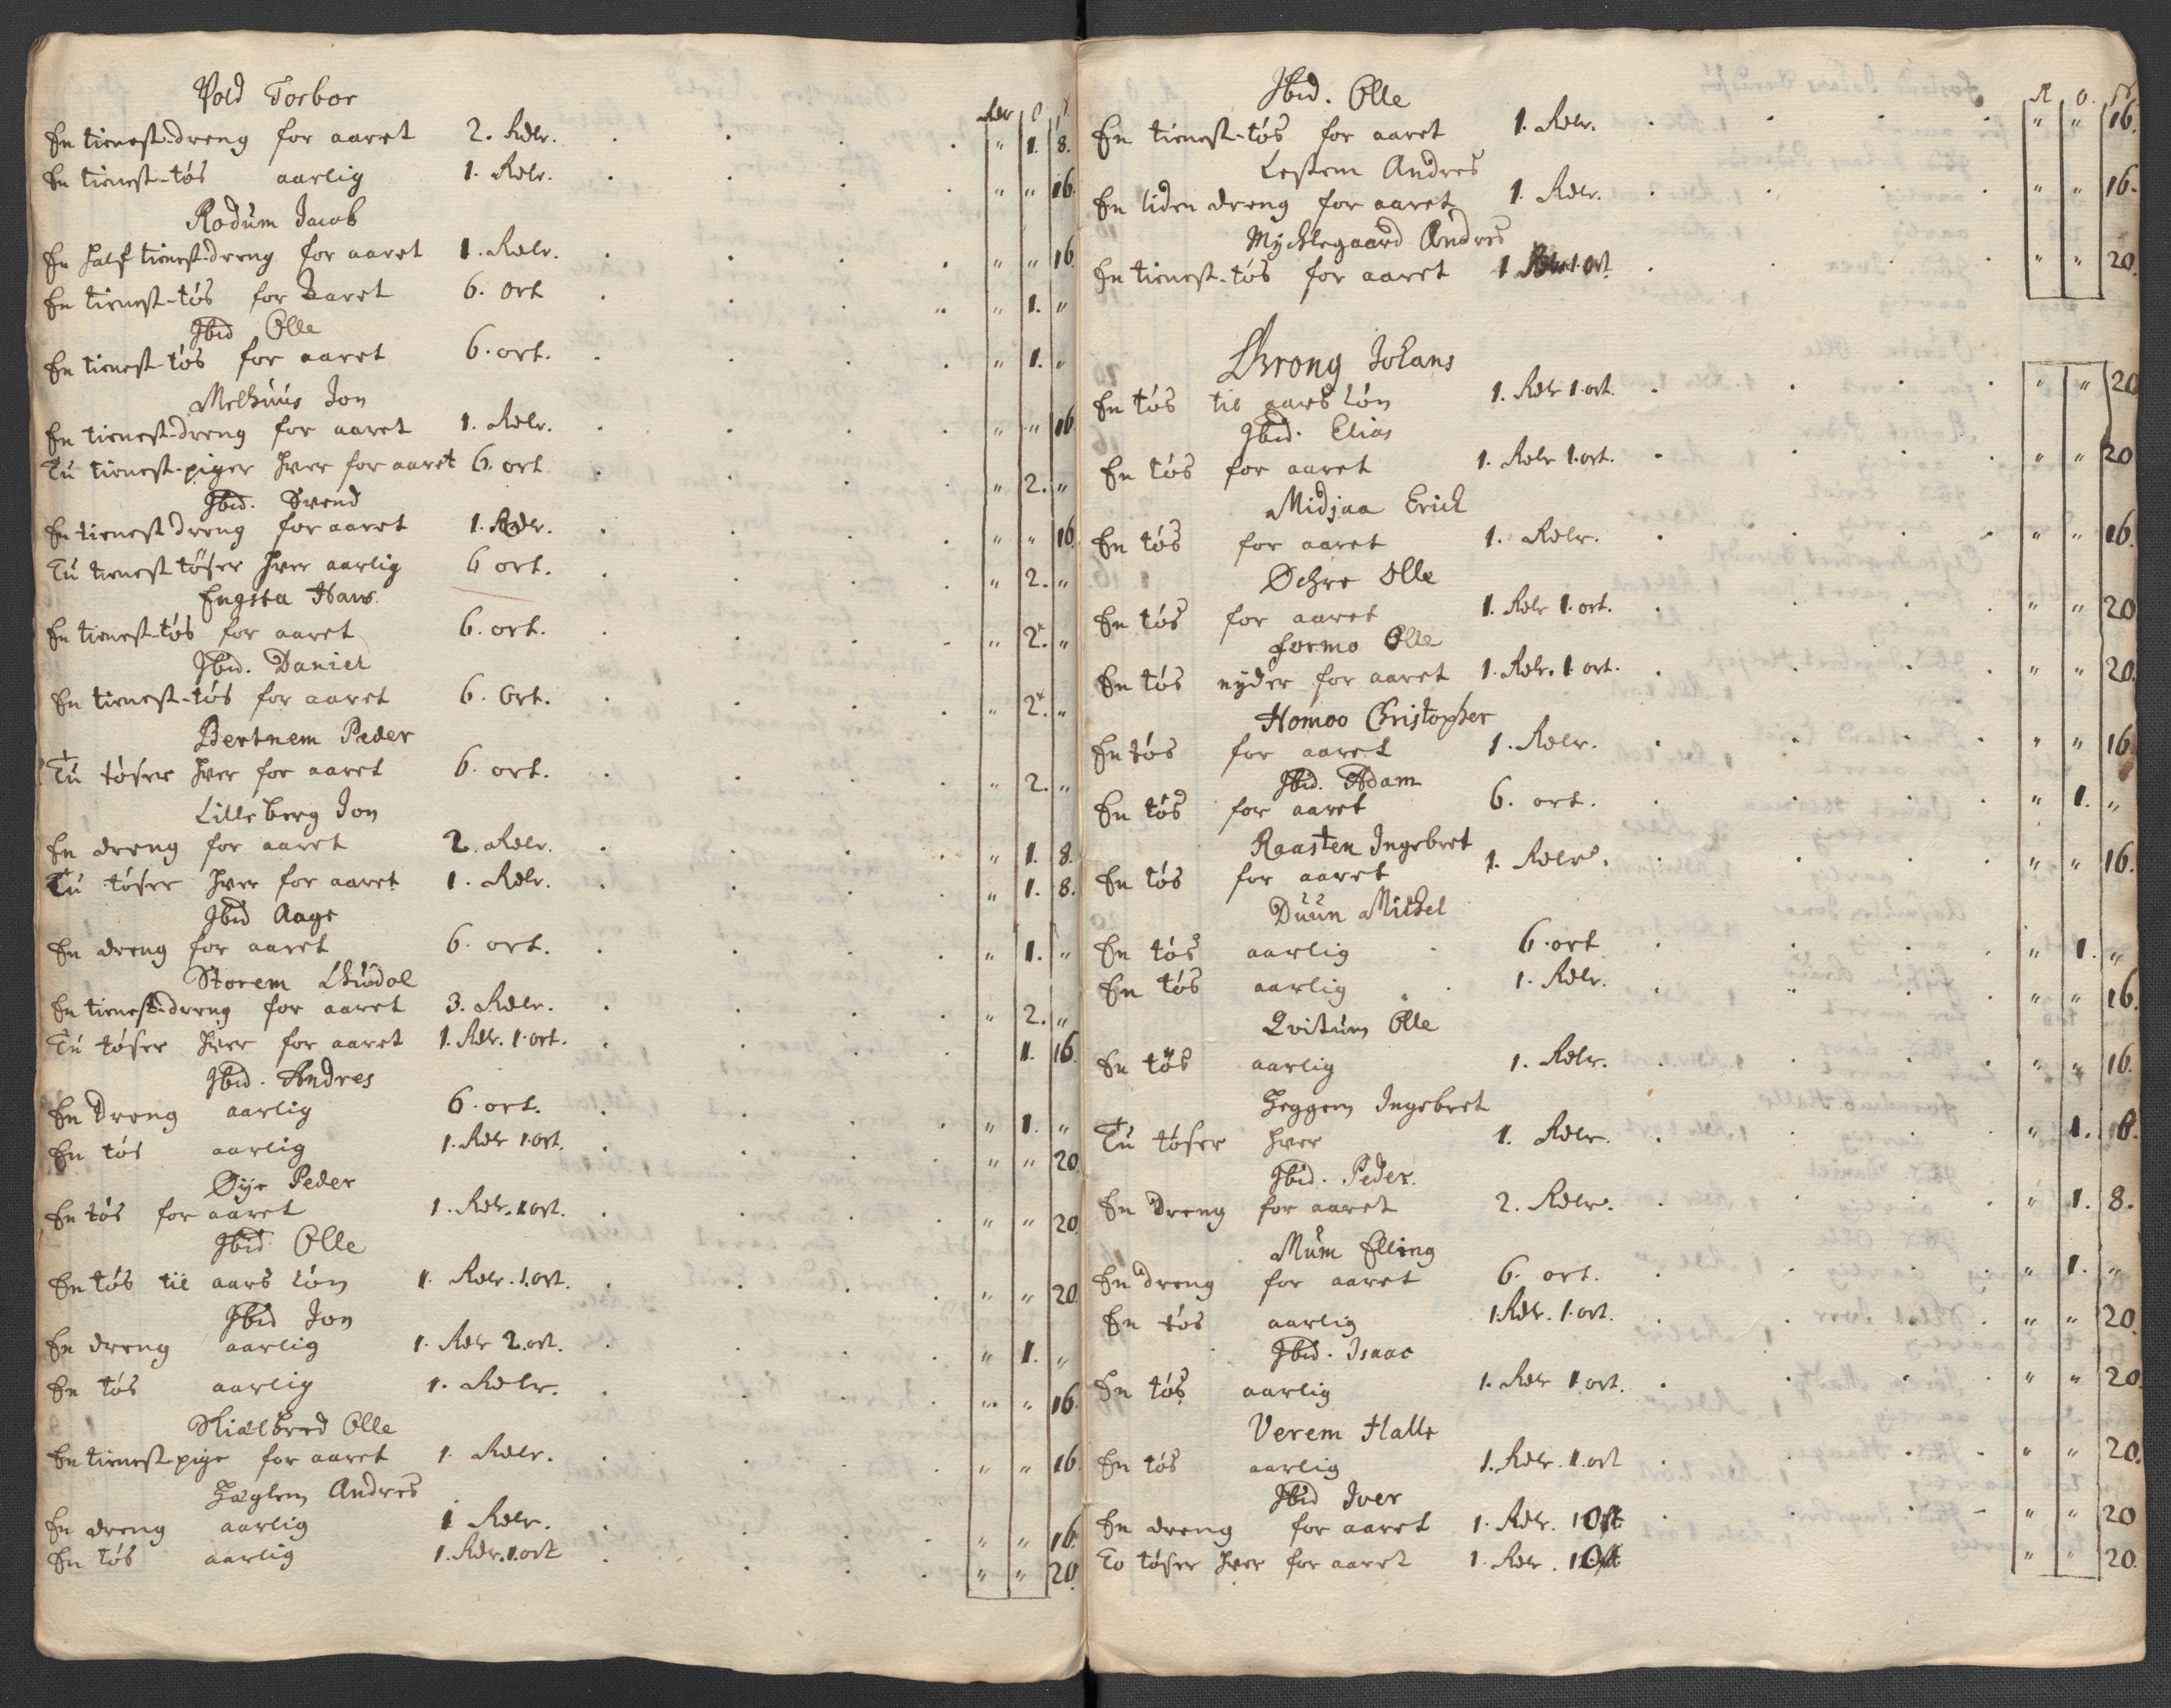 Vold Torbor
Rdlr O ß
En tienest-dreng for aaret 2. Rdlr. " 1. 8.
En tienest-tøs aarlig 1. Rdlr. " " 16
Rodum Jacob
En half tienest-dreng for aaret 1. Rdlr. " " 16
En tienest-tøs for aaret 6. Ort " 1. "
Ibid Olle
En tienest-tøs for aaret 6. ort. " 1. "
Melhuus Jon
En tienest-dreng for aaret 1. Rdlr. " " 16
Tu tienest-piger hver for aaret 6. ort " 2. "
Ibid. Svend
En tienest dreng for aaret 1. Rdlr. " " 16
Tu tienest tøser hver aarlig 6 ort. " 2. "
Engsta Hans.
En tienest-tøs for aaret 6. ort. " 2. "
Ibid. Daniel
En tienest-tøs for aaret 6. Ort. " 2. "
Bertnem Peder
Tu tøser hver for aaret 6. ort. " 2. "
Lilleberg Jon
En dreng for aaret 2. Rdlr. " 1. 8.
Tu tøser hver for aaret 1. Rdlr. " 1. 8.
Ibid Aage
En dreng for aaret 6. ort. " 1. "
Storem
En tienest-dreng for aaret 3. Rdlr. " 2. "
Tu tøser hver for aaret 1. Rdlr. 1. ort. 1. 16.
Ibid. Andres
En dreng aarlig 6. ort. " 1. "
En tøs aarlig 1. Rdlr 1. ort. " " 20.
Øye Peder
En tøs for aaret 1. Rdlr. 1 ort. " " 20
Ibid Olle
En tøs til aars løn 1. Rdlr. 1. ort. " " 20.
Ibid Jon
En dreng aarlig 1. Rdlr 2. ort. " 1. "
En tøs aarlig 1. Rdlr. " " 16
Skielbred Olle
En tienest-pige for aaret 1. Rdlr. " " 16.
Haglem Andres
En dreng aarlig 1 Rdlr. " " 16.
En tøs aarlig 1. Rdlr. 1. ort " " 20.
Ibid. Olle
R O. ß
En tienest-tøs for aaret 1. Rdlr. " " 16.
Leßem Andres
En liden dreng for aaret 1. Rdlr. " " 16.
Mychlegaard Andres
En tienest-tøs for aaret 1 Rdlr 1. ort. " " 20.
Throng Johans
En tøs til aars løn 1. Rdlr 1. ort. " " 20
Ibid. Elias
En tøs for aaret 1. Rdlr 1. ort. " " 20
Midjaa Erich
En tøs for aaret 1. Rdlr. " " 16.
Øchre Olle
En tøs for aaret 1. Rdlr 1. ort. " " 20
Formo Olle
En tøs nyder for aaret 1. Rdlr. 1 ort. " " 20.
Homoo Christopher
En tøs for aaret 1. Rdlr. " " 16.
Ibid. Adam
En tøs for aaret 6. ort. " 1. "
Raasten Ingebret
En tøs for aaret 1. Rdlr. " " 16.
Duun Michel
En tøs aarlig 6. ort " 1. "
En tøs aarlig 1. Rdlr. " " 16.
Qvistum Olle
En tøs aarlig 1. Rdlr. " " 16.
Heggem Ingebret
Tu tøser hver 1. Rdlr. " 1. 8.
Ibid. Peder.
En dreng for aaret 2. Rdlr. " 1. 8.
Mum Elling
En dreng for aaret 6. ort. " 1. "
En tøs aarlig 1 Rdlr. 1. ort. " " 20.
Ibid. Isaac
En tøs aarlig 1. Rdlr 1 ort. " " 20.
Verem Halle
En tøs aarlig 1. Rdlr. 1. ort " " 20.
Ibid Iver
En dreng for aaret 1. Rdlr. 1 Ort " " 20
To tøser hver for aaret 1. Rdlr. 1 Ort " " 20.